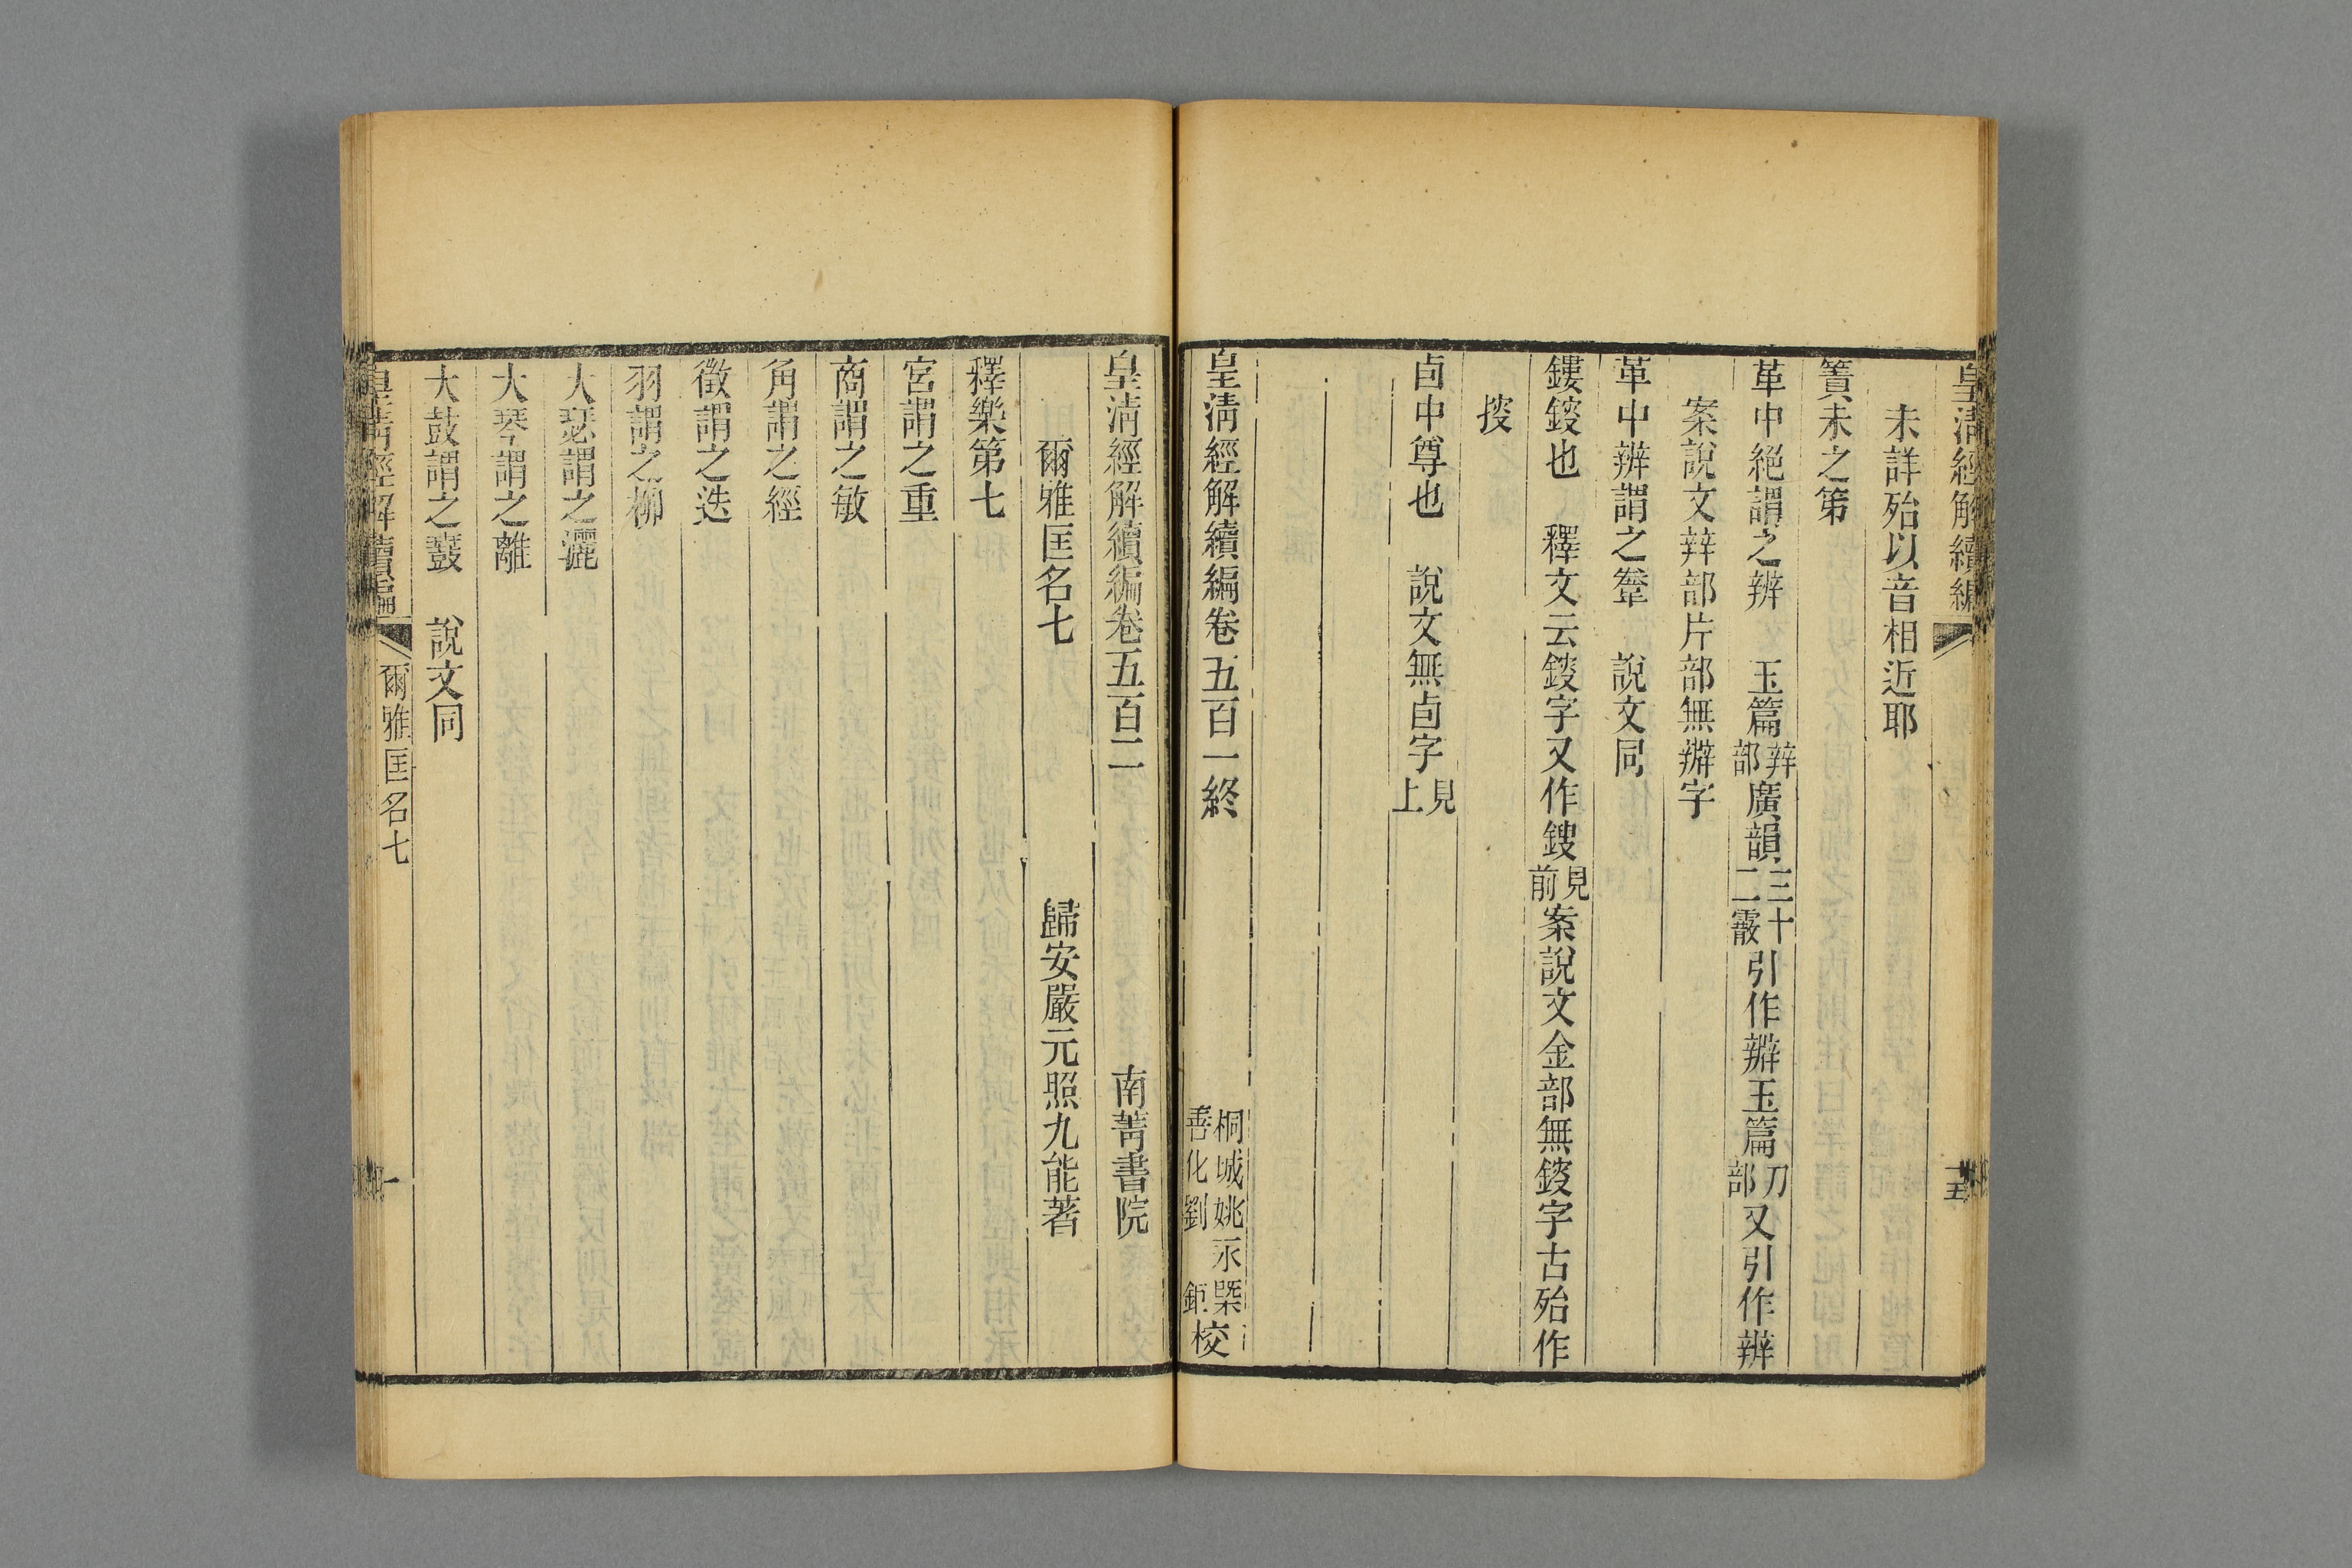 皇清經解續編
五
未詳殆以音相近耶
簀未之第
革中絕謂之辨　玉篇辡部廣韻三十二霰引作辧玉篇刀部又引作辨
案說文辡部片部無辧字
革中辨謂之韏　說文同
鏤鋄也　釋文云鋄字又作鎪見前案說文金部無鋄字古殆作
㧻
卣中尊也　說文無卣字見上
皇清經解續編卷五百一終　桐城姚永㮣善化劉鉅校
皇清經解續編卷五百二　南菁書院
爾雅匡名七　歸安嚴元照九能著
釋樂第七
宮謂之重
商謂之敏
角謂之經
徵謂之迭
羽謂之柳
大瑟謂之灑
大琴謂之離
大鼓謂之鼖　說文同
皇清經解續編　爾雅匡名七　一